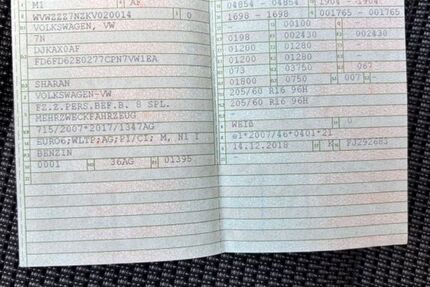 M1 AF
WVWZZZ7NZKV020014 0
VOLKSWAGEN, VW
7N
DJKAX0AF
FD6FD62E0277CPN7VW1EA
SHARAN
VOLKSWAGEN-VW
FZ.Z.PERS.BEF.B. 8 SPL.
MEHRZWECKFAHRZEUG
715/2007*2017/1347AG
EURO6;WLTP;AG;PI/CI; M, N1 I
BENZIN
0001 36AG 01395
04854 - 04854 1904 - 1904
1698 - 1698 001765 - 001765
0100
01198 002430 002430
01200 01280 -
01200 01280 -
073 03750 067
01800 0750 007
205/60 R16 96H
205/60 R16 96H
-
WEIß 0
e1*2007/46*0401*21
14.12.2018 K FJ292683